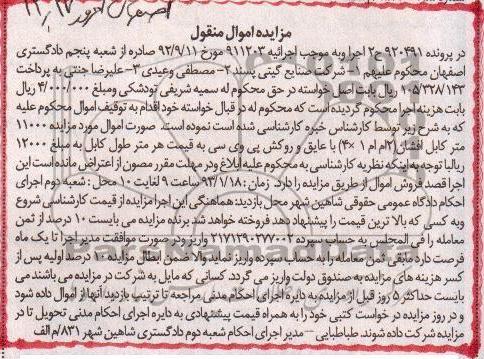 اصفهان امروز ۱۲/۱۷
مزایده اموال منقول
در پرونده ۹۲۰۴۹۱ ج۲ اجرا وبه موجب اجرائیه ۹۱۱۲۰۳ مورخ ۹۲/۹/۱۱ صادره از شعبه پنجم دادگستری
اصفهان محکوم علیهم ۱- شرکت صنایع گیتی پسند ۲- مصطفی وعیدی ۳- علیرضا جنتی به پرداخت
۱۰۵/۳۲۸/۱۴۳ ریال بابت اصل خواسته در حق محکوم له سمیه شریفی تودشکی ومبلغ ۴/۰۰۰/۰۰۰ ریال
بابت هزینه اجرا محکوم گردیده است که محکوم له در قبال خواسته خود اقدام به توقیف اموال محکوم علیه
که به شرح زیر توسط کارشناس خبره کارشناسی شده است نموده است. صورت اموال مورد مزایده ۱۱۰۰۰
متر کابل افشان (۲ام ام ۱ ×۴) با عایق و روکش پی وی سی به قیمت هر متر طول کابل به مبلغ ۱۲۰۰۰
ریالبا توجه به اینکه نظریه کارشناسی به محکوم علیه ابلاغ ودر مهلت مقرر مصون از اعتراض مانده است این
اجرا قصد فروش اموال از طریق مزایده را دارد. زمان: ۹۳/۱/۱۸ ساعت ۹ لغایت ۱۰ محل: شعبه دوم اجرای
احکام دادگاه عمومی حقوقی شاهین شهر محل بازدید هماهنگی این اجرا مزایده از قیمت کارشناسی شروع
وبه کسی که بالا ترین قیمت را پیشنهاد دهد فروخته خواهد شد. برنده مزایده می بایست ۱۰ درصد از ثمن
معامله را فی المجلس به حساب سپرده ۲۱۷۱۲۹۰۲۷۷۰۰۲ واریز ودر صورت موافقت مدیر اجرا تا یک ماه
فرصت دارد مابقی ثمن معامله را به حساب سپرده واریز نماید والا ضمن ابطال مزایده ۱۰ درصد اولیه پس از
کسر هزینه های مزایده به صندوق دولت واریز می گردد. کسانی که مایل به شرکت در مزایده می باشند می
بایست حداکثر ۵ روز قبل از مزایده به دایره اجرای احکام مدنی مراجعه تا ترتیب بازدید آنها از اموال داده شود
و در روز مزایده در خواست کتبی خود را به همراه قیمت پیشنهادی به دایره اجرای احکام مدنی تحویل تا در
مزایده شرکت داده شوند. طباطبایی- مدیر اجرای احکام شعبه دوم دادگستری شاهین شهر ۸۳۱/م الف